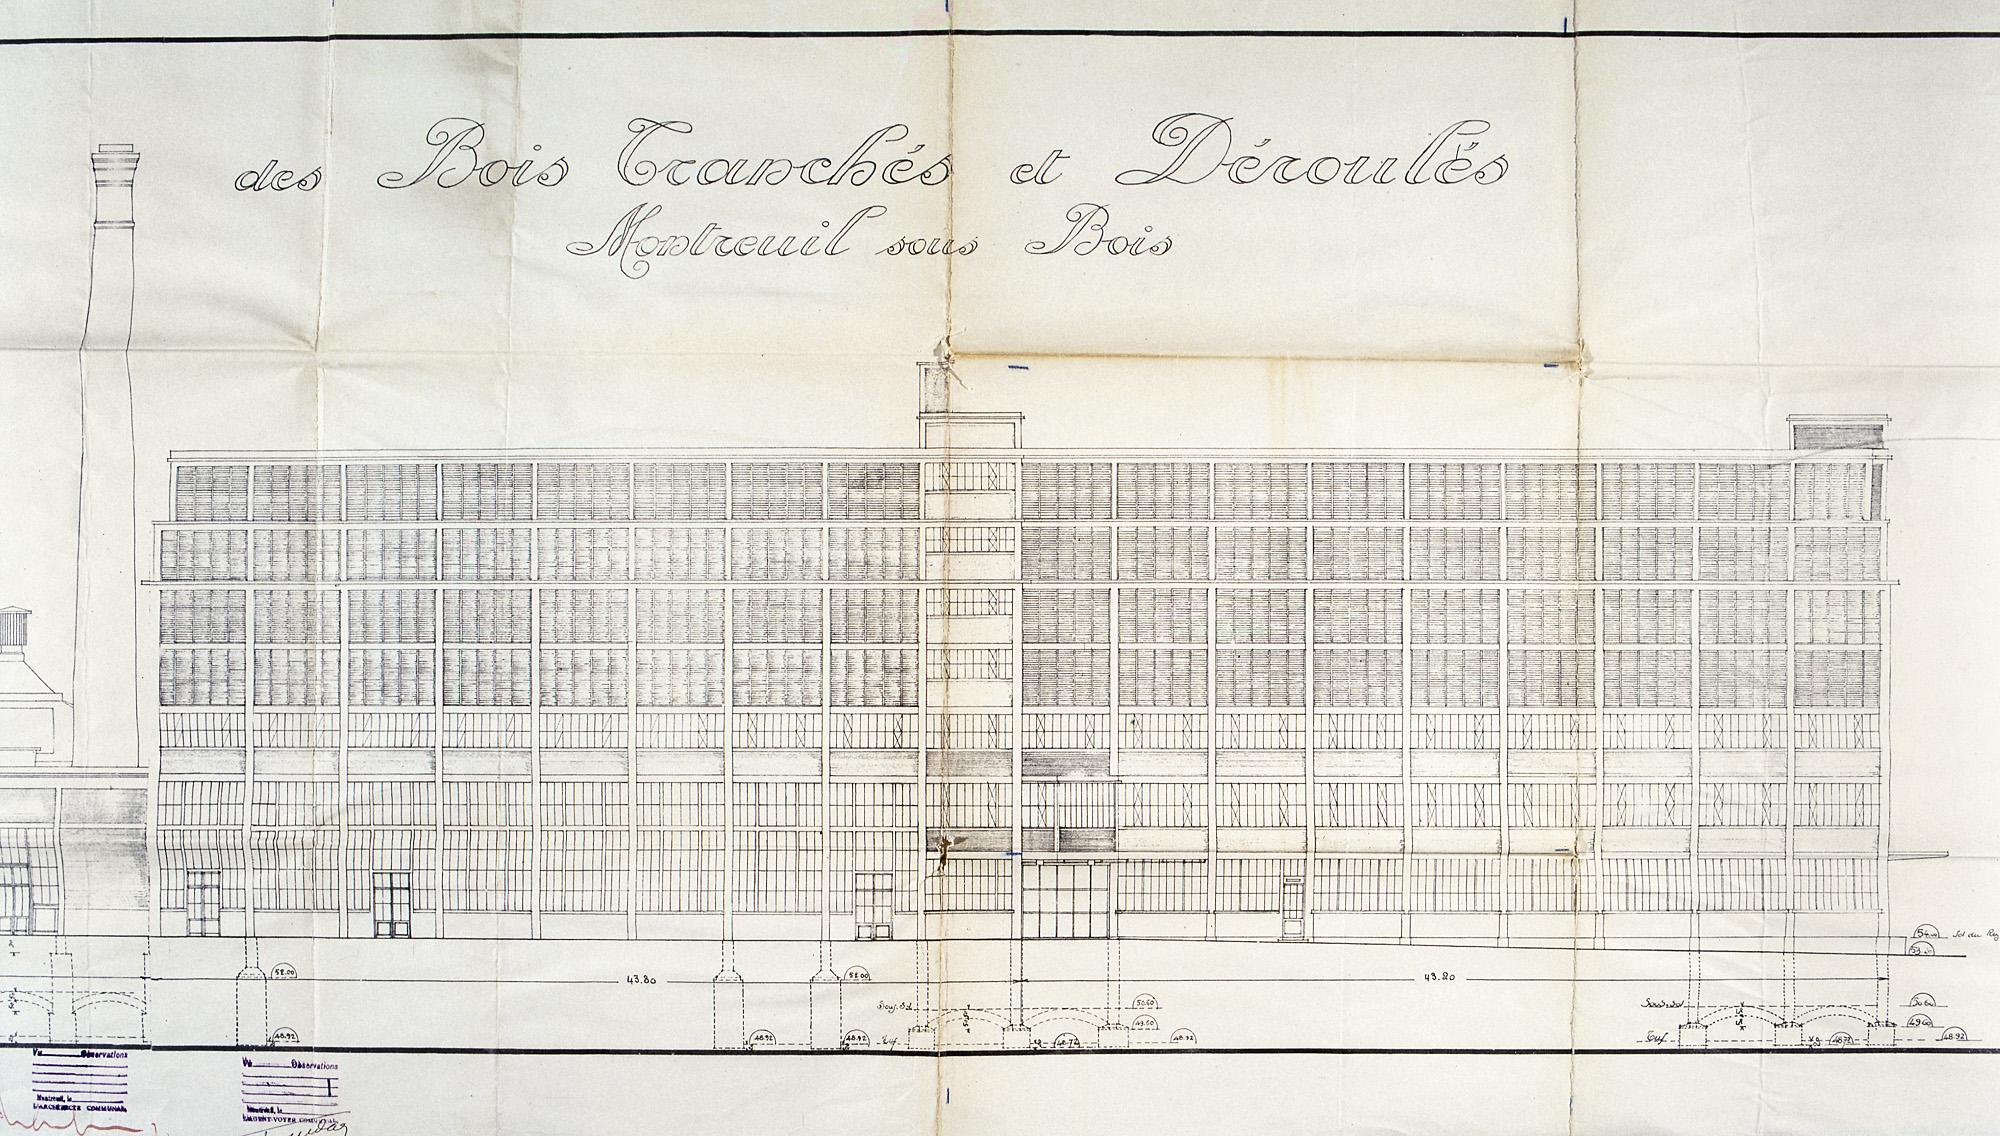 des Bois Tranchés et Déroulés
Montreuil sous Bois
54.00 Sol du Rez
52.00
43.80
52.00
43.20
50.60
50.60
49.60
49.60
Tuf
Tuf
48.92
48.92
48.92
48.72
48.92
48.72
48.92
Vu Observations
Montreuil, le
L'ARCHITECTE COMMUNAL
Vu Observations
Montreuil, le
L'AGENT-VOYER COMMUNAL